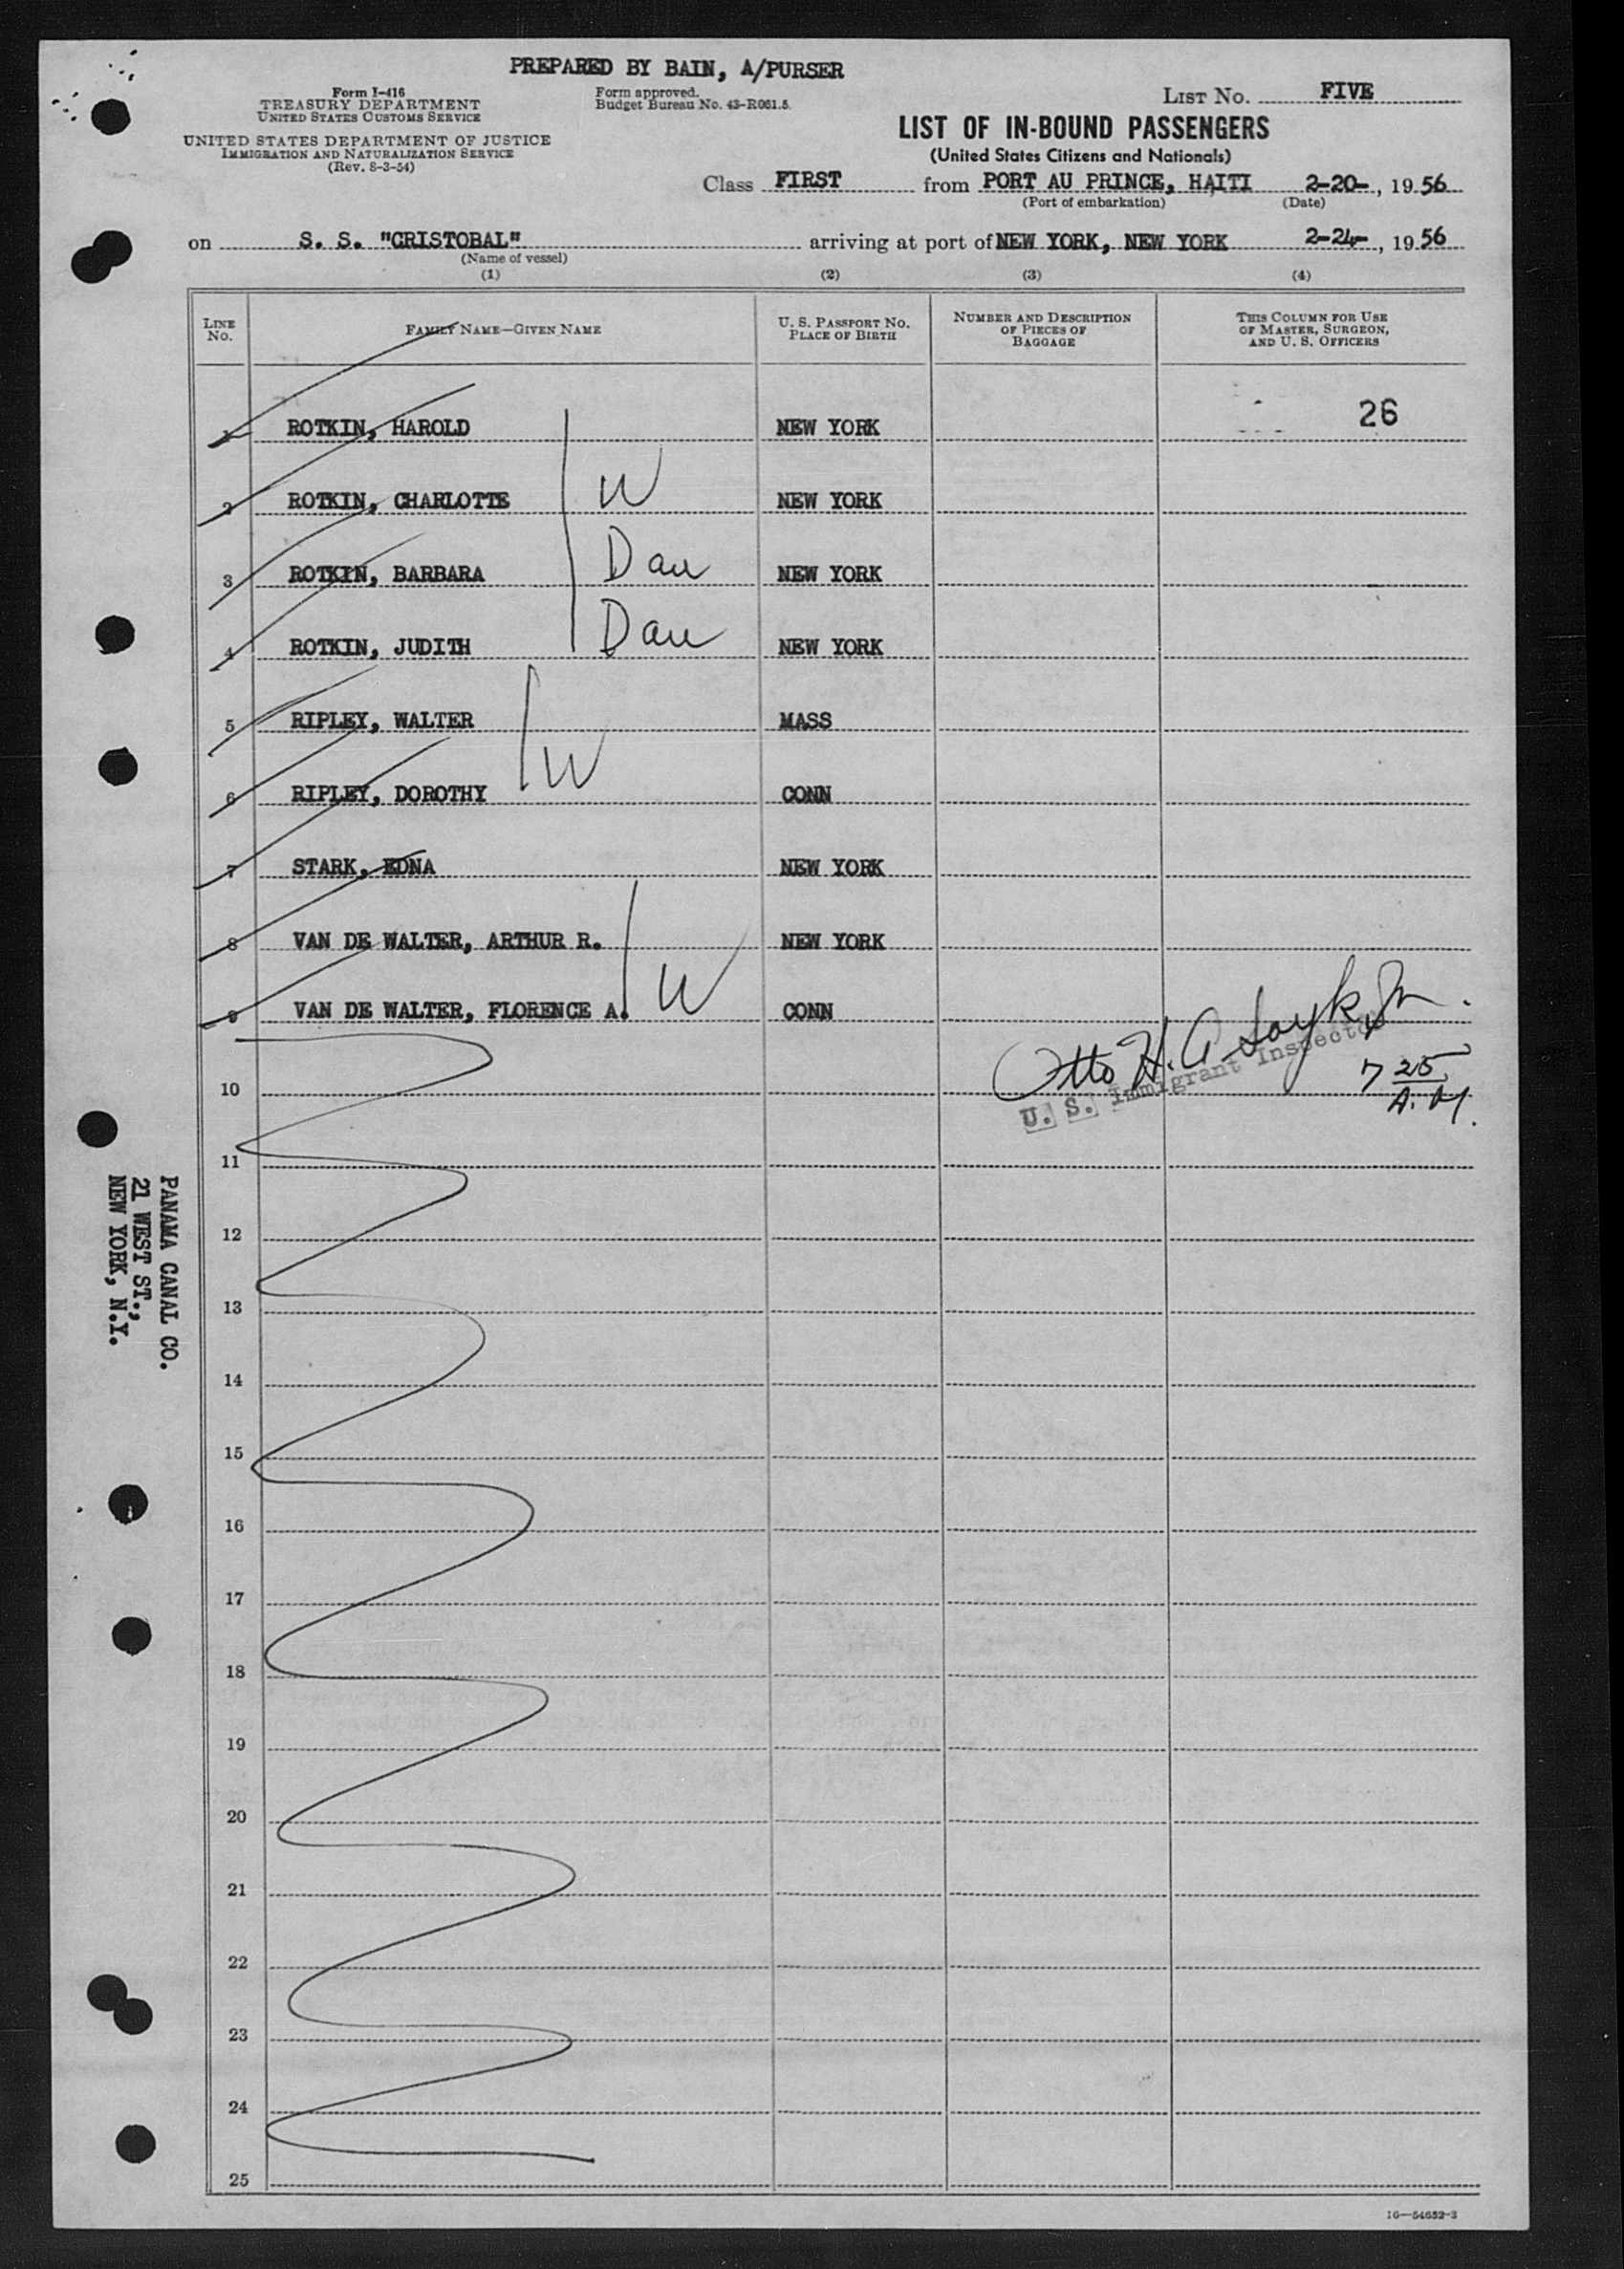 PREPARED BY BAIN, A/PURSER
Form I-416
TREASURY DEPARTMENT
UNITED STATES CUSTOMS SERVICE
UNITED STATES DEPARTMENT OF JUSTICE
IMMIGRATION AND NATURALIZATION SERVICE
(Rev. 8-3-54)
Form approved.
Budget Bureau No. 43-R061.5.
LIST No. FIVE
LIST OF IN-BOUND PASSENGERS
(United States Citizens and Nationals)
Class FIRST from PORT AU PRINCE, HAITI 2-20-, 1956
(Port of embarkation) (Date)
on S. S. "CRISTOBAL" arriving at port of NEW YORK, NEW YORK 2-24-, 1956
(Name of vessel)
(1) (2) (3) (4)
LINE No. FAMILY NAME—GIVEN NAME U. S. PASSPORT No. PLACE OF BIRTH NUMBER AND DESCRIPTION OF PIECES OF BAGGAGE THIS COLUMN FOR USE OF MASTER, SURGEON, AND U. S. OFFICERS
1 ROTKIN, HAROLD NEW YORK 26
2 ROTKIN, CHARLOTTE W NEW YORK
3 ROTKIN, BARBARA Dau NEW YORK
4 ROTKIN, JUDITH Dau NEW YORK
5 RIPLEY, WALTER MASS
6 RIPLEY, DOROTHY W CONN
7 STARK, EDNA NEW YORK
8 VAN DE WALTER, ARTHUR R. NEW YORK
9 VAN DE WALTER, FLORENCE A. W CONN
Otto H.
U. S. Immigrant Inspector
7 25 A. M.
10
11
12
13
14
15
16
17
18
19
20
21
22
23
24
25
PANAMA CANAL CO.
21 WEST ST.,
NEW YORK, N.Y.
16—54652-3